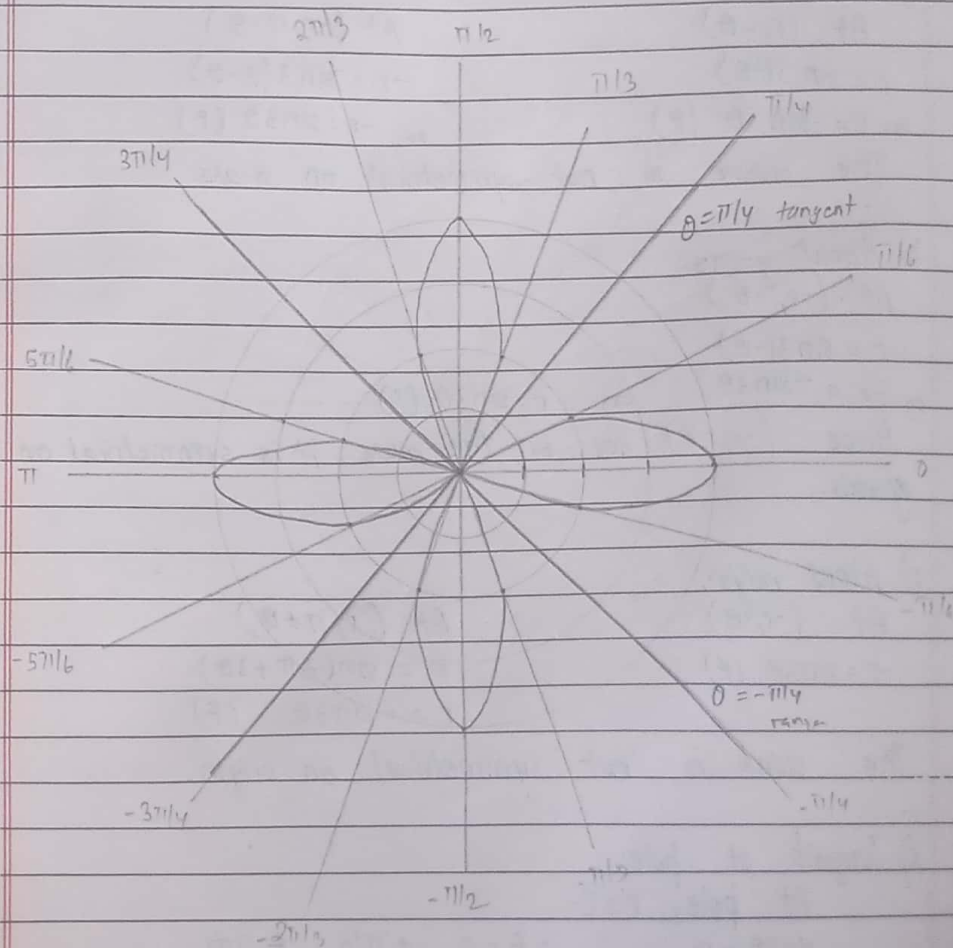 2π/3 π/2
π/3
π/4
3π/4
θ=π/4 tangent
π/6
5π/6
π
0
-π/6
-5π/6
θ = -π/4
-3π/4
-π/4
-π/3
-π/2
-2π/3